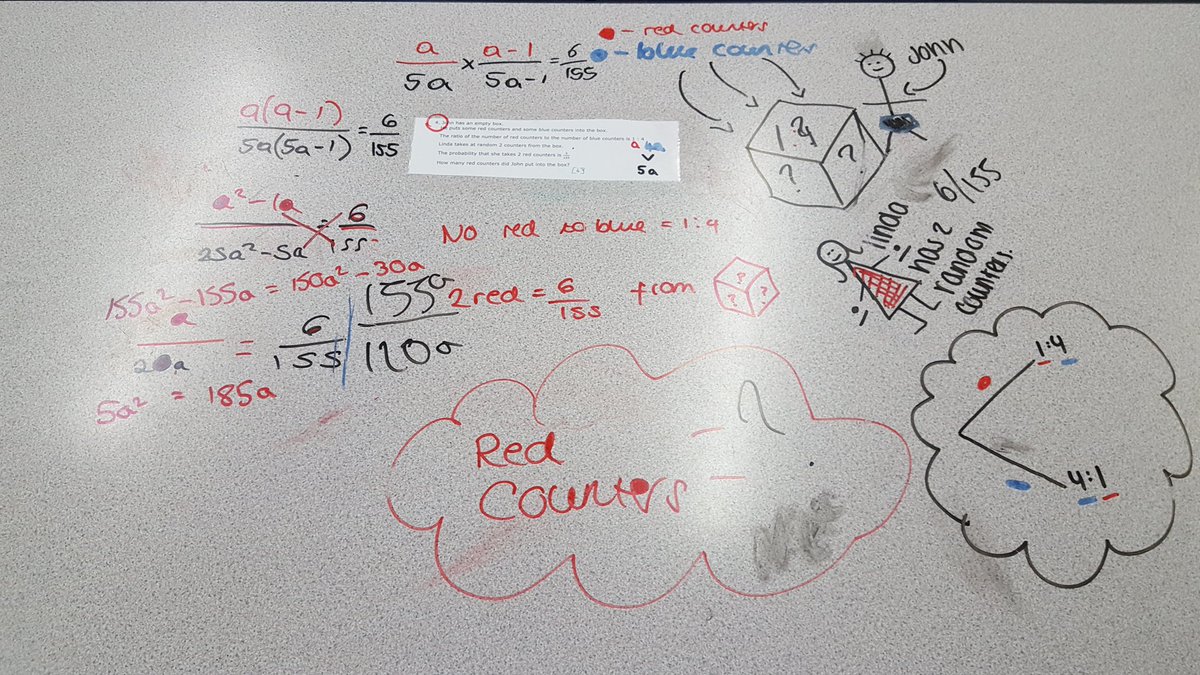 a/5a × a-1/5a-1 = 6/155
- red counters
- blue counters
John
a(a-1)/5a(5a-1) = 6/155
John has an empty box.
puts some red counters and some blue counters into the box.
The ratio of the number of red counters to the number of blue counters is 1 : 4
Linda takes at random 2 counters from the box.
The probability that she takes 2 red counters is 6/155
How many red counters did John put into the box?
a 4a
5a
1:4
?
?
?
a²-1a/25a²-5a = 6/155
No red to blue = 1:4
155a²-155a = 150a²-30a
2 red = 6/155 from
? ? ?
linda
has 2 6/155
random
counters.
a/20a = 6/155
155a/120a
5a² = 185a
Red
Counters
= ?
1:4
4:1